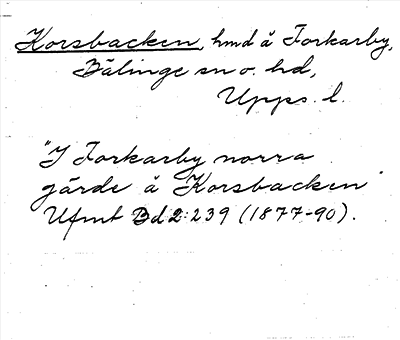 Korsbacken, hmd å Forkarby,
Bälinge sn o. hd,
Upps. l.
"I Forkarby norra
gärde å Korsbacken"
Ufmt Bd 2:239 (1877-90).